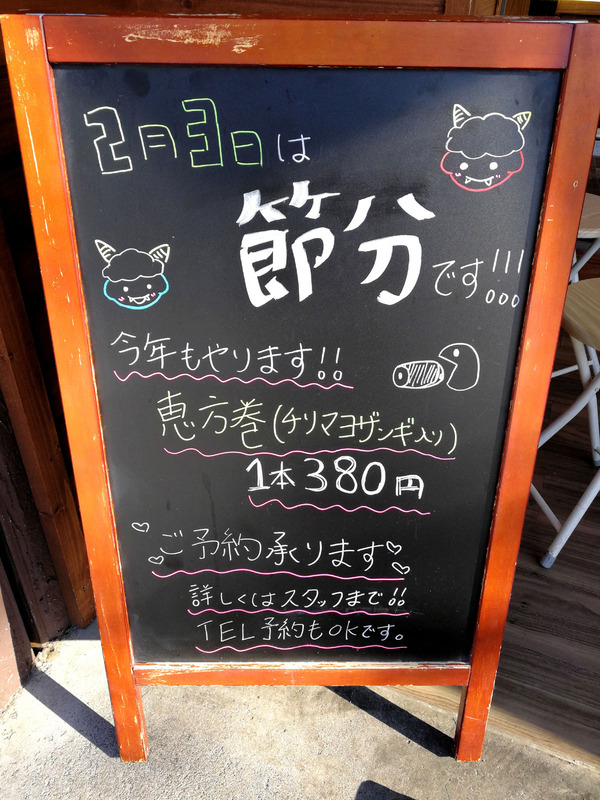 2月3日は
節分です!!!
今年もやります!!
恵方巻(チリマヨザンギ入り)
1本380円
ご予約承ります
詳しくはスタッフまで!!
TEL予約もOKです。